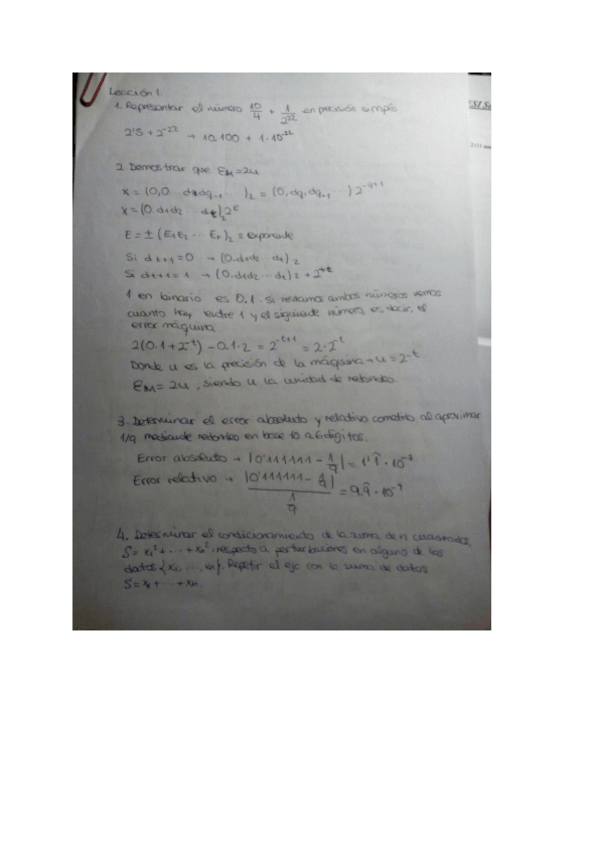 Lección 1.
1. Representar el número 10/4 + 1/2^22 en precisión simple
2'5 + 2^-22 → 10.100 + 1·10^-22
2. Demostrar que EM = 2u
X = (0,0 ... dq dq+1 ... )2 = (0, dq, dq+1 ... ) 2^-q+1
X = (0.d1d2 ... dt)2 2^E
E = ± (E1E2 ... Er)2 = exponente
Si dt+1 = 0 → (0.d1d2 ... dt)2
Si dt+1 = 1 → (0.d1d2 ... dt)2 + 2^-t
1 en binario es 0.1. Si restamos ambos números vemos
cuanto hay entre 1 y el siguiente número, es decir, el
error máquina
2(0.1 + 2^-t) - 0.1·2 = 2^-t+1 = 2·2^-t
Donde u es la precisión de la máquina → u = 2^-t
EM = 2u, siendo u la unidad de redondeo.
3. Determinar el error absoluto y relativo cometido al aproximar
1/9 mediante redondeo en base 10 a 6 dígitos.
Error absoluto → |0'111111 - 1/9| = 1'1̂ · 10^-7
Error relativo → |0'111111 - 1/9| / (1/9) = 9.9̂ · 10^-7
4. Determinar el condicionamiento de la suma de n cuadrados,
S = x1² + ... + xn² respecto a perturbaciones en alguno de los
datos {x1, ..., xn}. Repetir el ejc con la suma de datos
S = x1 + ... + xn.